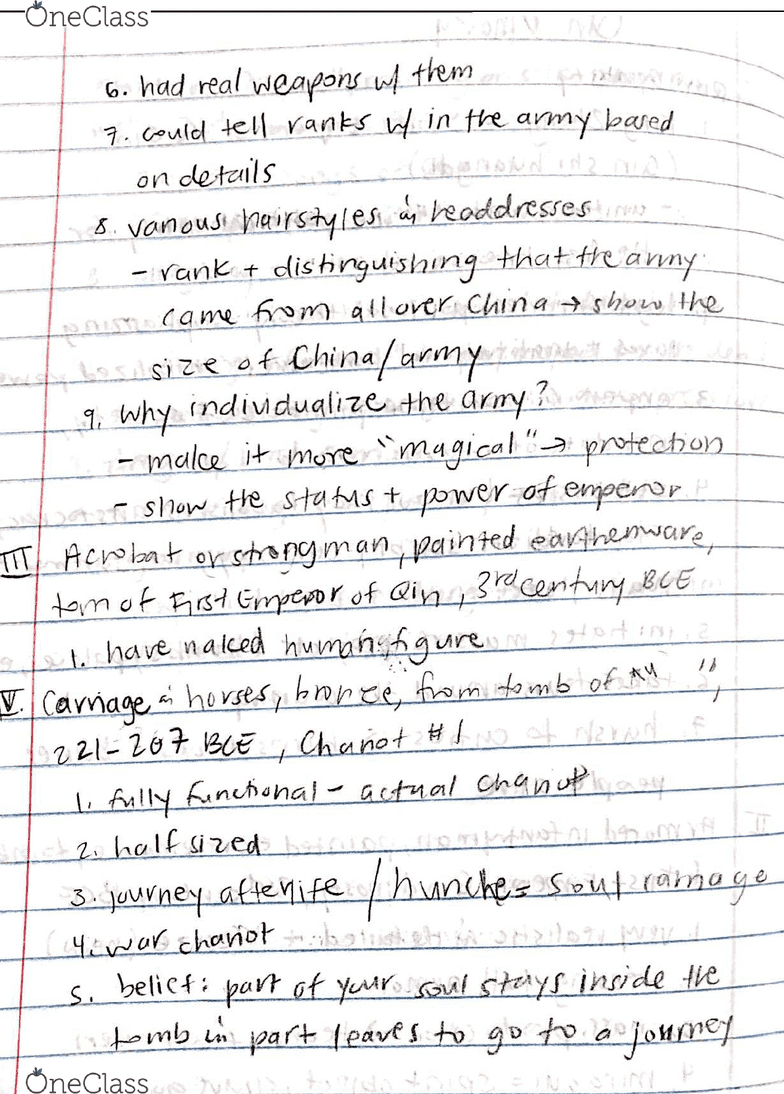 OneClass
6. had real weapons w/ them
7. could tell ranks w/ in the army based
on details
8. various hairstyles & headdresses
- rank + distinguishing that the army
came from all over China → show the
size of China/army
9. Why individualize the army?
- make it more "magical" → protection
- show the status + power of emperor
III Acrobat or strongman, painted earthenware,
tom of First Emperor of Qin, 3rd century BCE
1. have naked human figure
V. Carriage & horses, bronze, from tomb of " ",
221-207 BCE, Chariot #1
1. fully functional - actual chariot
2. half sized
3. journey afterlife / hunche = soul carriage
4. war chariot
5. belief: part of your soul stays inside the
tomb & part leaves to go to a journey
OneClass